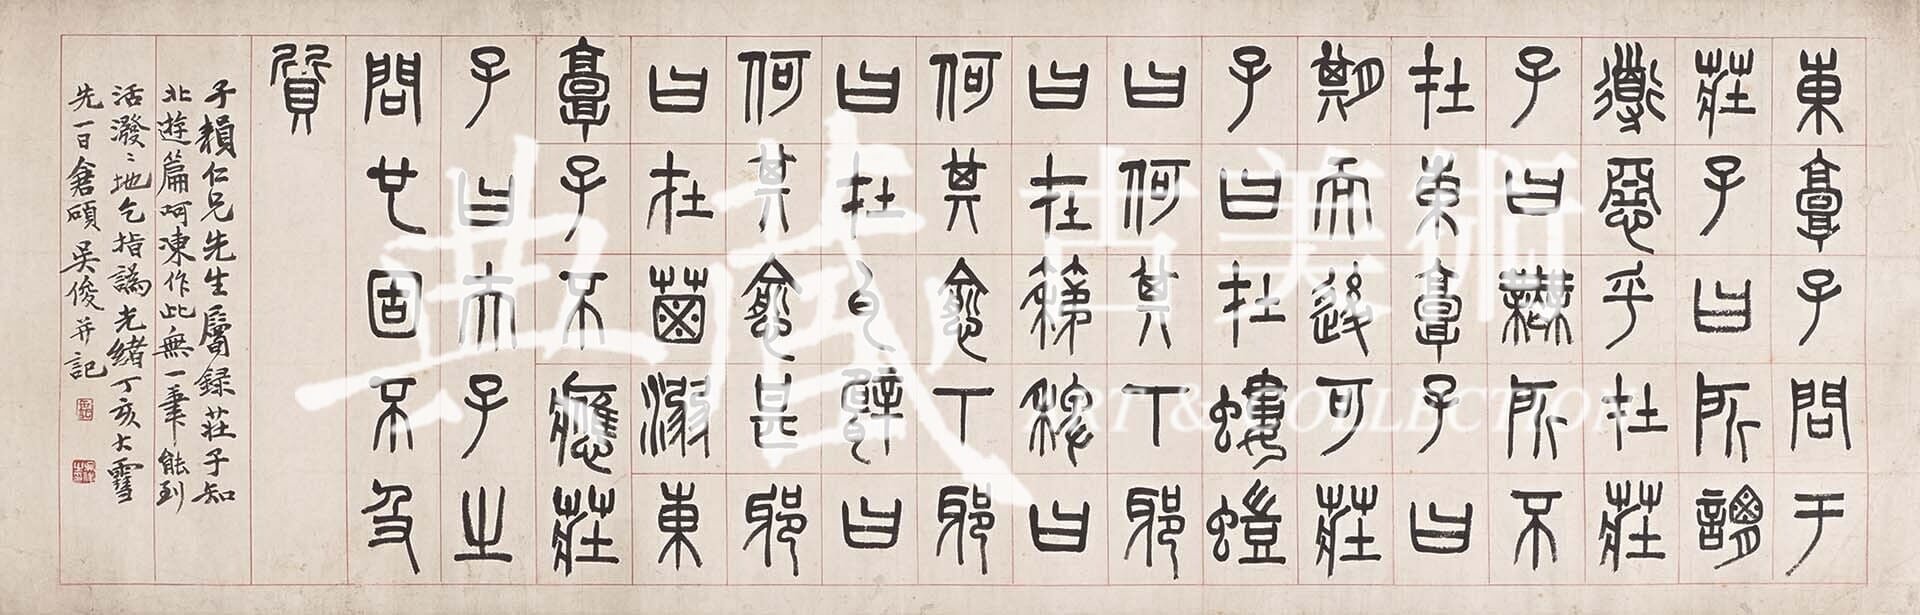 東郭子問于
莊子曰所謂
道惡乎在莊
子曰無所不
在東郭子曰
期而後可莊
子曰在螻螘
曰何其下邪
曰在稊稗曰
何其愈下邪
曰在瓦甓曰
何其愈甚邪
曰在屎溺東
郭子不應莊
子曰夫子之
問也固不及
質
子穎仁兄先生屬錄莊子知
北遊篇呵凍作此無一筆能到
活潑〻地乞指譌光緒丁亥大雪
先一日倉碩吳俊并記
典藏 古美術
ART & COLLECTION